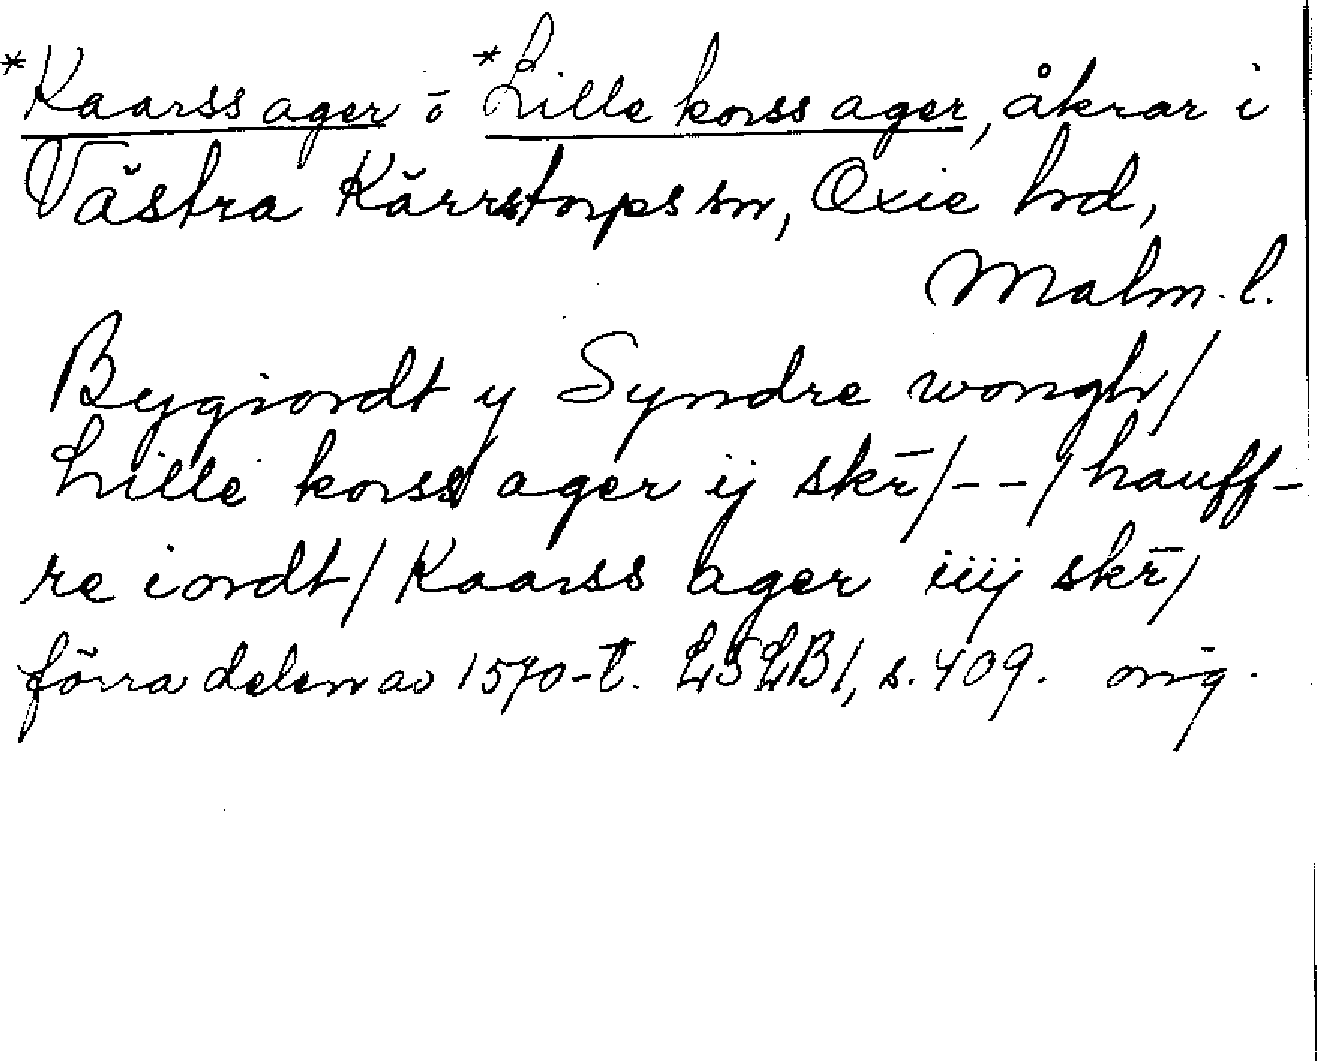 *Kaarss ager o *Lille korss ager, åkrar i
Västra Kärrstorps sn, Oxie hd,
Malm. l.
Bygiordt y Syndre wongh/
Lille korss ager ij skr̄/--/hauff-
re iordt/ Kaarss ager iiij skr̄/
förra delen av 1570-t. LSLB1, s. 409. orig.